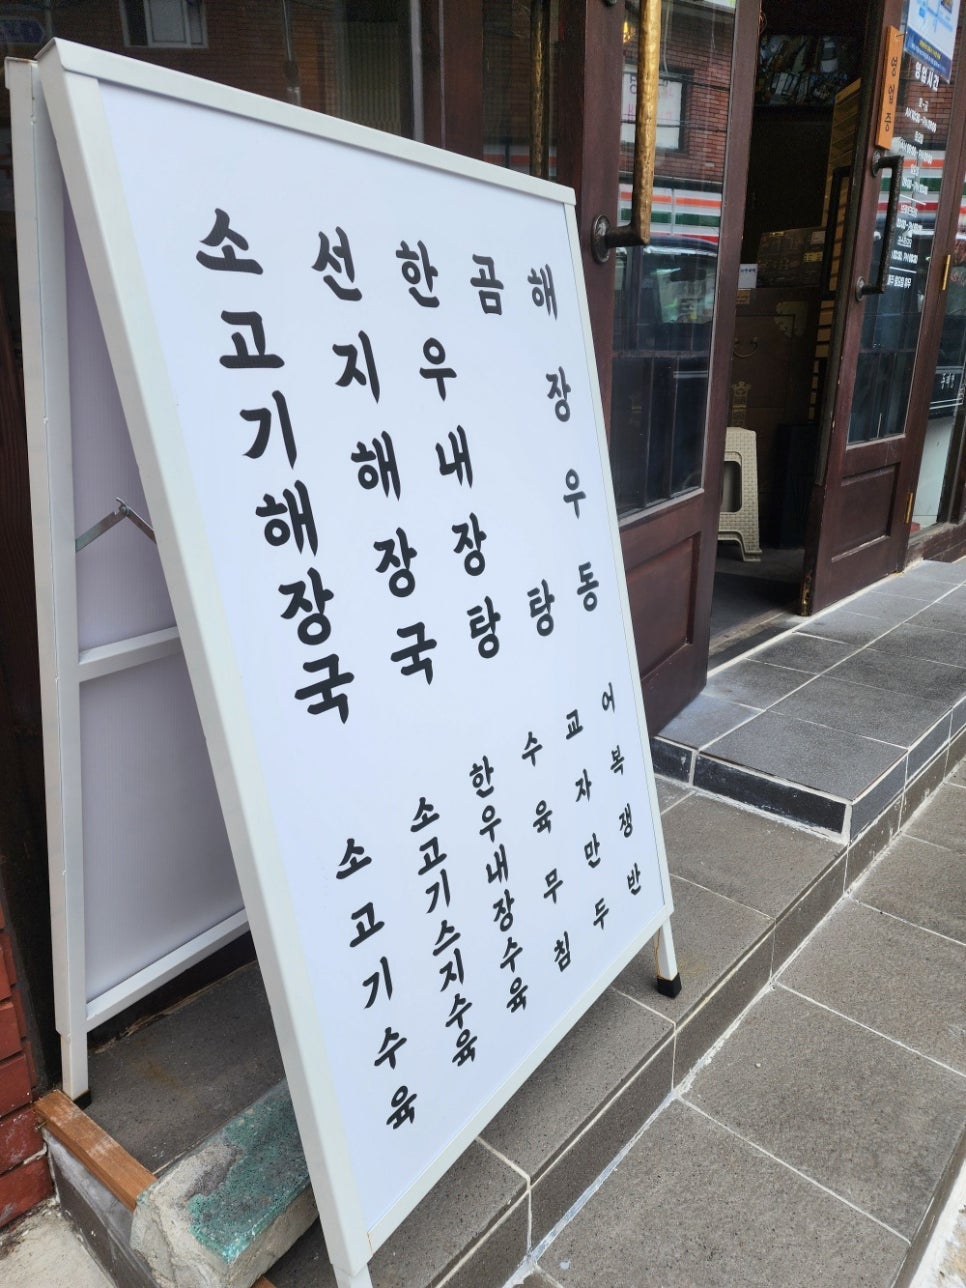 소고기해장국
선지해장국
한우내장탕
곰탕
해장우동
소고기수육
소고기스지수육
한우내장수육
수육무침
교자만두
어복쟁반
영업중
영업시간